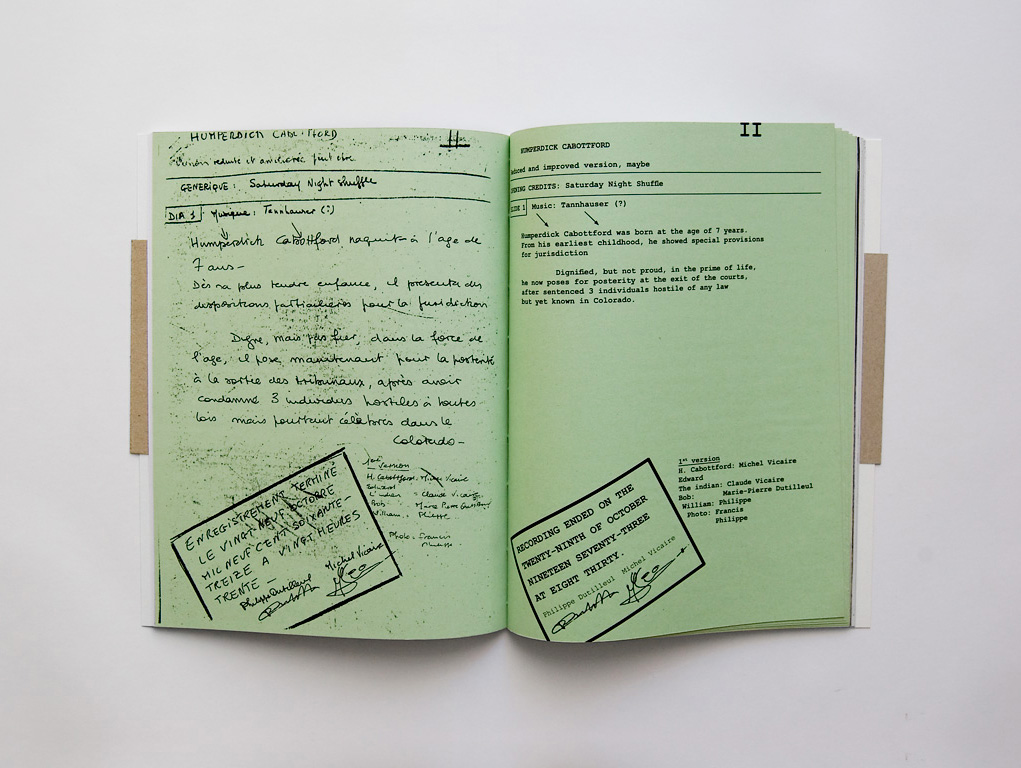 HUMPERDICK CABOTTFORD
II
Version réduite et améliorée peut être
GENERIQUE : Saturday Night Shuffle
DIA 1 Musique : Tannhauser (?)
Humperdick Cabottford naquit à l'age de
7 ans -
Dès sa plus tendre enfance, il présenta des
dispositions particulières pour la juridiction
Digne, mais pas fier, dans la force de
l'age, il pose maintenant pour la postérité
à la sortie des tribunaux, après avoir
condamné 3 individus hostiles à toutes
lois mais pourtant célèbres dans le
Colorado -
1st version
H. Cabottford : Michel Vicaire
Edward
L'indien : Claude Vicaire
Bob : Marie Pierre Dutilleul
William : Philippe
Photo : Francis
Philippe
ENREGISTREMENT TERMINÉ
LE VINGT NEUF OCTOBRE
MIL NEUF CENT SOIXANTE -
TREIZE A VINGT HEURES
TRENTE -
Philippe Dutilleul Michel Vicaire
II
HUMPERDICK CABOTTFORD
duced and improved version, maybe
ENING CREDITS: Saturday Night Shuffle
LIDE 1 Music: Tannhauser (?)
Humperdick Cabottford was born at the age of 7 years.
From his earliest childhood, he showed special provisions
for jurisdiction
Dignified, but not proud, in the prime of life,
he now poses for posterity at the exit of the courts,
after sentenced 3 individuals hostile of any law
but yet known in Colorado.
1st version
H. Cabottford: Michel Vicaire
Edward
The indian: Claude Vicaire
Bob: Marie-Pierre Dutilleul
William: Philippe
Photo: Francis
Philippe
RECORDING ENDED ON THE
TWENTY-NINTH OF OCTOBER
NINETEEN SEVENTY-THREE
AT EIGHT THIRTY.
Philippe Dutilleul Michel Vicaire